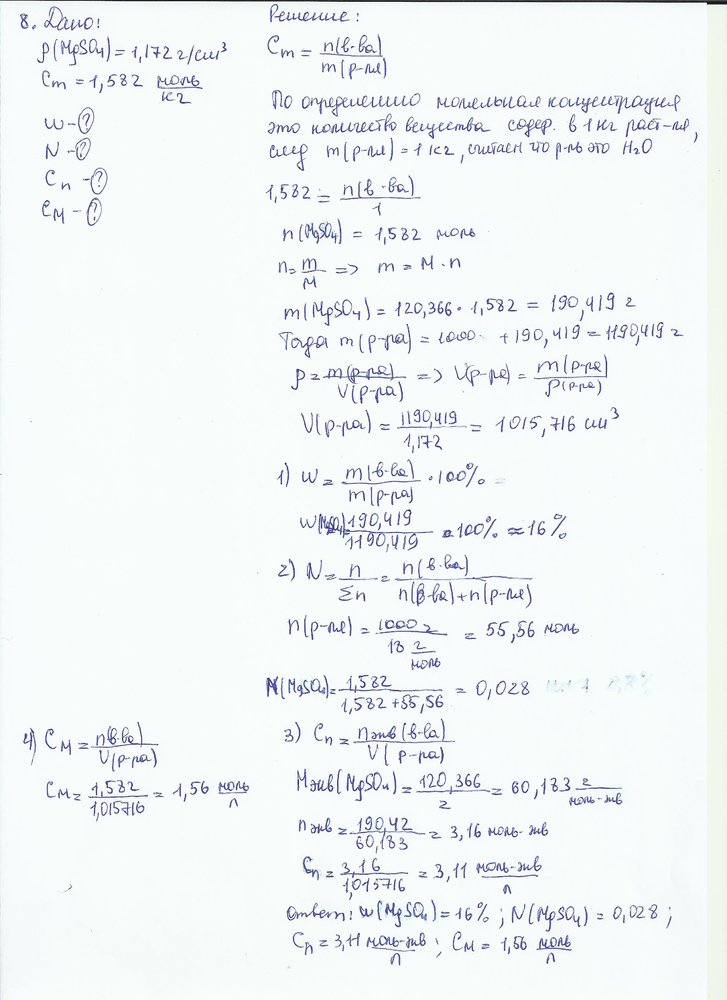 8. Дано:
ρ(MgSO4) = 1,172 г/см³
Cm = 1,582 моль/кг
w - ?
N - ?
Cn - ?
CM - ?
Решение:
Cm = n(в-ва)/m(р-ля)
По определению моляльная концентрация
это количество вещества содер. в 1 кг раст-ля,
след m(р-ля) = 1 кг, считаем что р-ль это H2O
1,582 = n(в-ва)/1
n(MgSO4) = 1,582 моль
n = m/M => m = M · n
m(MgSO4) = 120,366 · 1,582 = 190,419 г
Тогда m(р-ра) = 1000 + 190,419 = 1190,419 г
ρ = m(р-ра)/V(р-ра) => V(р-ра) = m(р-ра)/ρ(р-ра)
V(р-ра) = 1190,419/1,172 = 1015,716 см³
1) w = m(в-ва)/m(р-ра) · 100%
w(MgSO4) = 190,419/1190,419 · 100% ≈ 16%
2) N = n/Σn = n(в-ва)/n(в-ва)+n(р-ля)
n(р-ля) = 1000 г/18 г/моль = 55,56 моль
N(MgSO4) = 1,582/1,582+55,56 = 0,028
3) Cn = nэкв(в-ва)/V(р-ра)
Mэкв(MgSO4) = 120,366/2 = 60,183 г/моль-экв
nэкв = 190,42/60,183 = 3,16 моль-экв
Cn = 3,16/1,015716 = 3,11 моль-экв/л
4) CM = n(в-ва)/V(р-ра)
CM = 1,582/1,015716 = 1,56 моль/л
Ответ: w(MgSO4) = 16%; N(MgSO4) = 0,028;
Cn = 3,11 моль-экв/л; CM = 1,56 моль/л